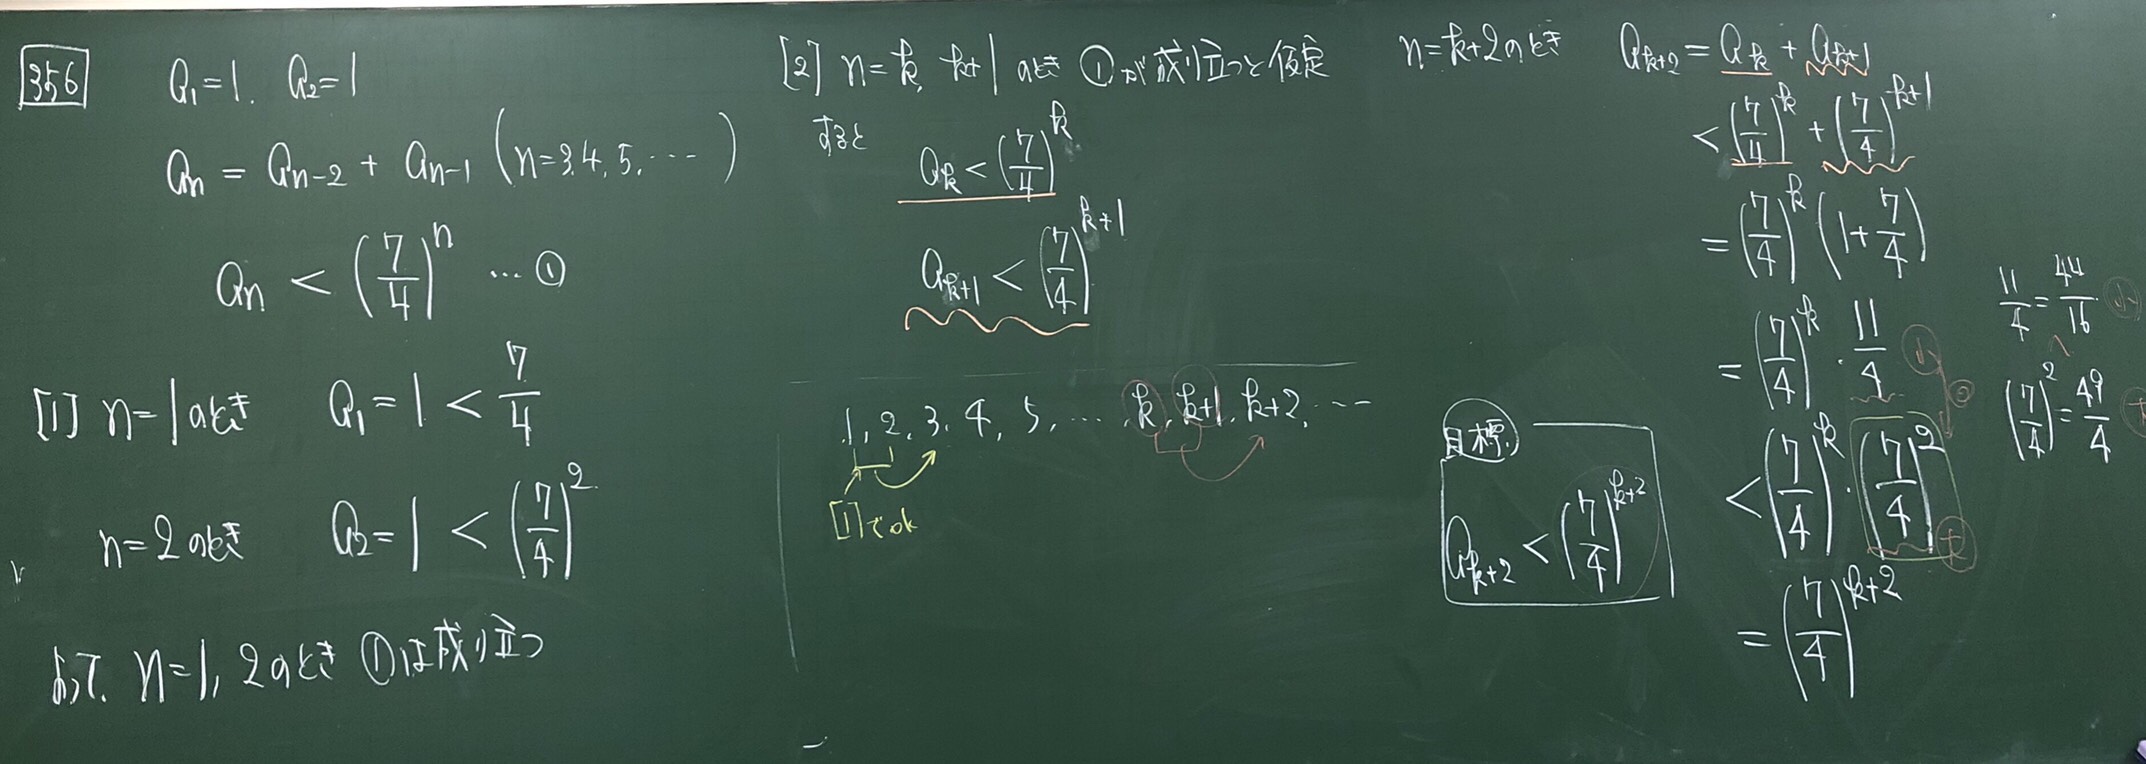 356 a₁=1. a₂=1
aₙ = aₙ₋₂ + aₙ₋₁ (n=3,4,5,…)
aₙ < (7/4)ⁿ …①
[1] n=1のとき a₁=1 < 7/4
n=2のとき a₂=1 < (7/4)²
よって、n=1, 2のとき ①は成り立つ
[2] n=k, k+1 のとき ①が成り立つと仮定
すると
aₖ < (7/4)ᵏ
aₖ₊₁ < (7/4)ᵏ⁺¹
1, 2, 3, 4, 5, … k, k+1, k+2, …
[1]でok
n=k+2のとき aₖ₊₂ = aₖ + aₖ₊₁
< (7/4)ᵏ + (7/4)ᵏ⁺¹
= (7/4)ᵏ (1+7/4)
= (7/4)ᵏ · 11/4 小
< (7/4)ᵏ · (7/4)² 大
= (7/4)ᵏ⁺²
目標
aₖ₊₂ < (7/4)ᵏ⁺²
11/4 = 44/16 小
∧
(7/4)² = 49/4 大